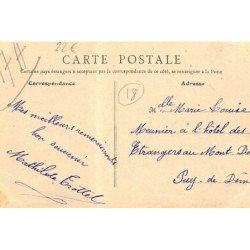 22€
CARTE POSTALE
Certains pays étrangers n'acceptant pas la correspondance de ce côté, se renseigner à la Poste
Correspondance
Adresse
18
Mes meilleurs remerciements
bon souvenir
Mathilde
Mlle Marie Louise
Meunier à l'hôtel des
Etrangers au Mont Dore
Puy de Dôme